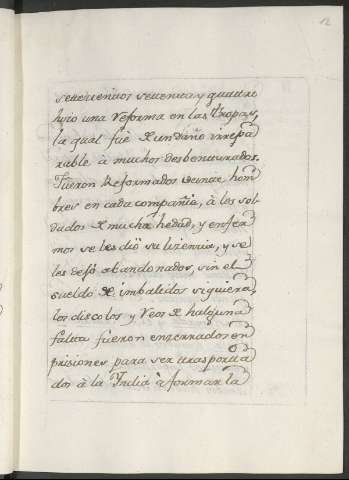 12
settecientos settenta y quattro
hyio una Reforma en las tropas,
la qual fue de un daño irrepa
rable à muchos desbenturados.
Fueron Reformados veinte hom
bres en cada compañia, à los sol
dados de mucha hedad, y enfer
mos se les diò su lizenzia, y se
les dejò abandonados, sin el
sueldo de imbalidos siquiera,
los discolos y Reos de halguna
falta fueron enzerrados en
prisiones para ser trasporta
dos à la India à formar la